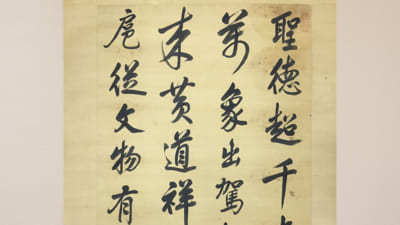 聖德超千
萬象出駕
來黃道祥
扈從文物有